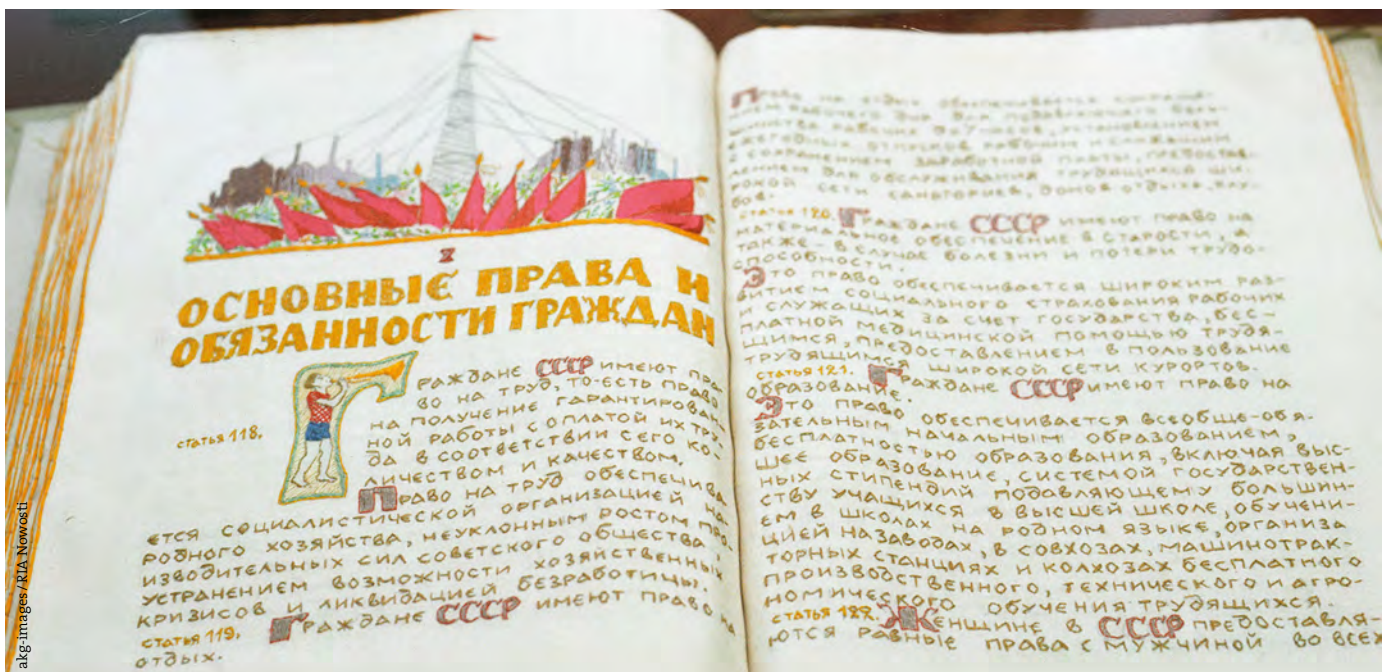 X
ОСНОВНЫЕ ПРАВА И
ОБЯЗАННОСТИ ГРАЖДАН
статья 118. ГРАЖДАНЕ СССР ИМЕЮТ ПРА
ВО НА ТРУД, ТО-ЕСТЬ ПРАВО
НА ПОЛУЧЕНИЕ ГАРАНТИРОВАН
НОЙ РАБОТЫ С ОПЛАТОЙ ИХ ТРУ-
ДА В СООТВЕТСТВИИ С ЕГО КО-
ЛИЧЕСТВОМ И КАЧЕСТВОМ.
ПРАВО НА ТРУД ОБЕСПЕЧИВА
ЕТСЯ СОЦИАЛИСТИЧЕСКОЙ ОРГАНИЗАЦИЕЙ НА-
РОДНОГО ХОЗЯЙСТВА, НЕУКЛОННЫМ РОСТОМ ПРО-
ИЗВОДИТЕЛЬНЫХ СИЛ СОВЕТСКОГО ОБЩЕСТВА,
УСТРАНЕНИЕМ ВОЗМОЖНОСТИ ХОЗЯЙСТВЕННЫХ
КРИЗИСОВ И ЛИКВИДАЦИЕЙ БЕЗРАБОТИЦЫ.
статья 119. ГРАЖДАНЕ СССР ИМЕЮТ ПРАВО НА
ОТДЫХ.
ПРАВО НА ОТДЫХ ОБЕСПЕЧИВАЕТСЯ СОКРАЩЕ-
НИЕМ РАБОЧЕГО ДНЯ ДЛЯ ПОДАВЛЯЮЩЕГО БОЛЬ-
ШИНСТВА РАБОЧИХ ДО 7 ЧАСОВ, УСТАНОВЛЕНИЕМ
ЕЖЕГОДНЫХ ОТПУСКОВ РАБОЧИМ И СЛУЖАЩИМ
С СОХРАНЕНИЕМ ЗАРАБОТНОЙ ПЛАТЫ, ПРЕДОСТАВ-
ЛЕНИЕМ ДЛЯ ОБСЛУЖИВАНИЯ ТРУДЯЩИХСЯ ШИ-
РОКОЙ СЕТИ САНАТОРИЕВ, ДОМОВ ОТДЫХА, КЛУ-
БОВ.
статья 120. ГРАЖДАНЕ СССР ИМЕЮТ ПРАВО НА
МАТЕРИАЛЬНОЕ ОБЕСПЕЧЕНИЕ В СТАРОСТИ, А
ТАКЖЕ - В СЛУЧАЕ БОЛЕЗНИ И ПОТЕРИ ТРУДО-
СПОСОБНОСТИ.
ЭТО ПРАВО ОБЕСПЕЧИВАЕТСЯ ШИРОКИМ РАЗ-
ВИТИЕМ СОЦИАЛЬНОГО СТРАХОВАНИЯ РАБОЧИХ
И СЛУЖАЩИХ ЗА СЧЕТ ГОСУДАРСТВА, БЕС-
ПЛАТНОЙ МЕДИЦИНСКОЙ ПОМОЩЬЮ ТРУДЯ-
ЩИМСЯ, ПРЕДОСТАВЛЕНИЕМ В ПОЛЬЗОВАНИЕ
ТРУДЯЩИМСЯ ШИРОКОЙ СЕТИ КУРОРТОВ.
статья 121. ГРАЖДАНЕ СССР ИМЕЮТ ПРАВО НА
ОБРАЗОВАНИЕ.
ЭТО ПРАВО ОБЕСПЕЧИВАЕТСЯ ВСЕОБЩЕ-ОБЯ-
ЗАТЕЛЬНЫМ НАЧАЛЬНЫМ ОБРАЗОВАНИЕМ,
БЕСПЛАТНОСТЬЮ ОБРАЗОВАНИЯ, ВКЛЮЧАЯ ВЫС-
ШЕЕ ОБРАЗОВАНИЕ, СИСТЕМОЙ ГОСУДАРСТВЕН-
НЫХ СТИПЕНДИЙ ПОДАВЛЯЮЩЕМУ БОЛЬШИН-
СТВУ УЧАЩИХСЯ В ВЫСШЕЙ ШКОЛЕ, ОБУЧЕНИ-
ЕМ В ШКОЛАХ НА РОДНОМ ЯЗЫКЕ, ОРГАНИЗА
ЦИЕЙ НА ЗАВОДАХ, В СОВХОЗАХ, МАШИНОТРАК-
ТОРНЫХ СТАНЦИЯХ И КОЛХОЗАХ БЕСПЛАТНОГО
ПРОИЗВОДСТВЕННОГО, ТЕХНИЧЕСКОГО И АГРО-
НОМИЧЕСКОГО ОБУЧЕНИЯ ТРУДЯЩИХСЯ.
статья 122. ЖЕНЩИНЕ В СССР ПРЕДОСТАВЛЯ-
ЮТСЯ РАВНЫЕ ПРАВА С МУЖЧИНОЙ ВО ВСЕХ
akg-images / RIA Nowosti